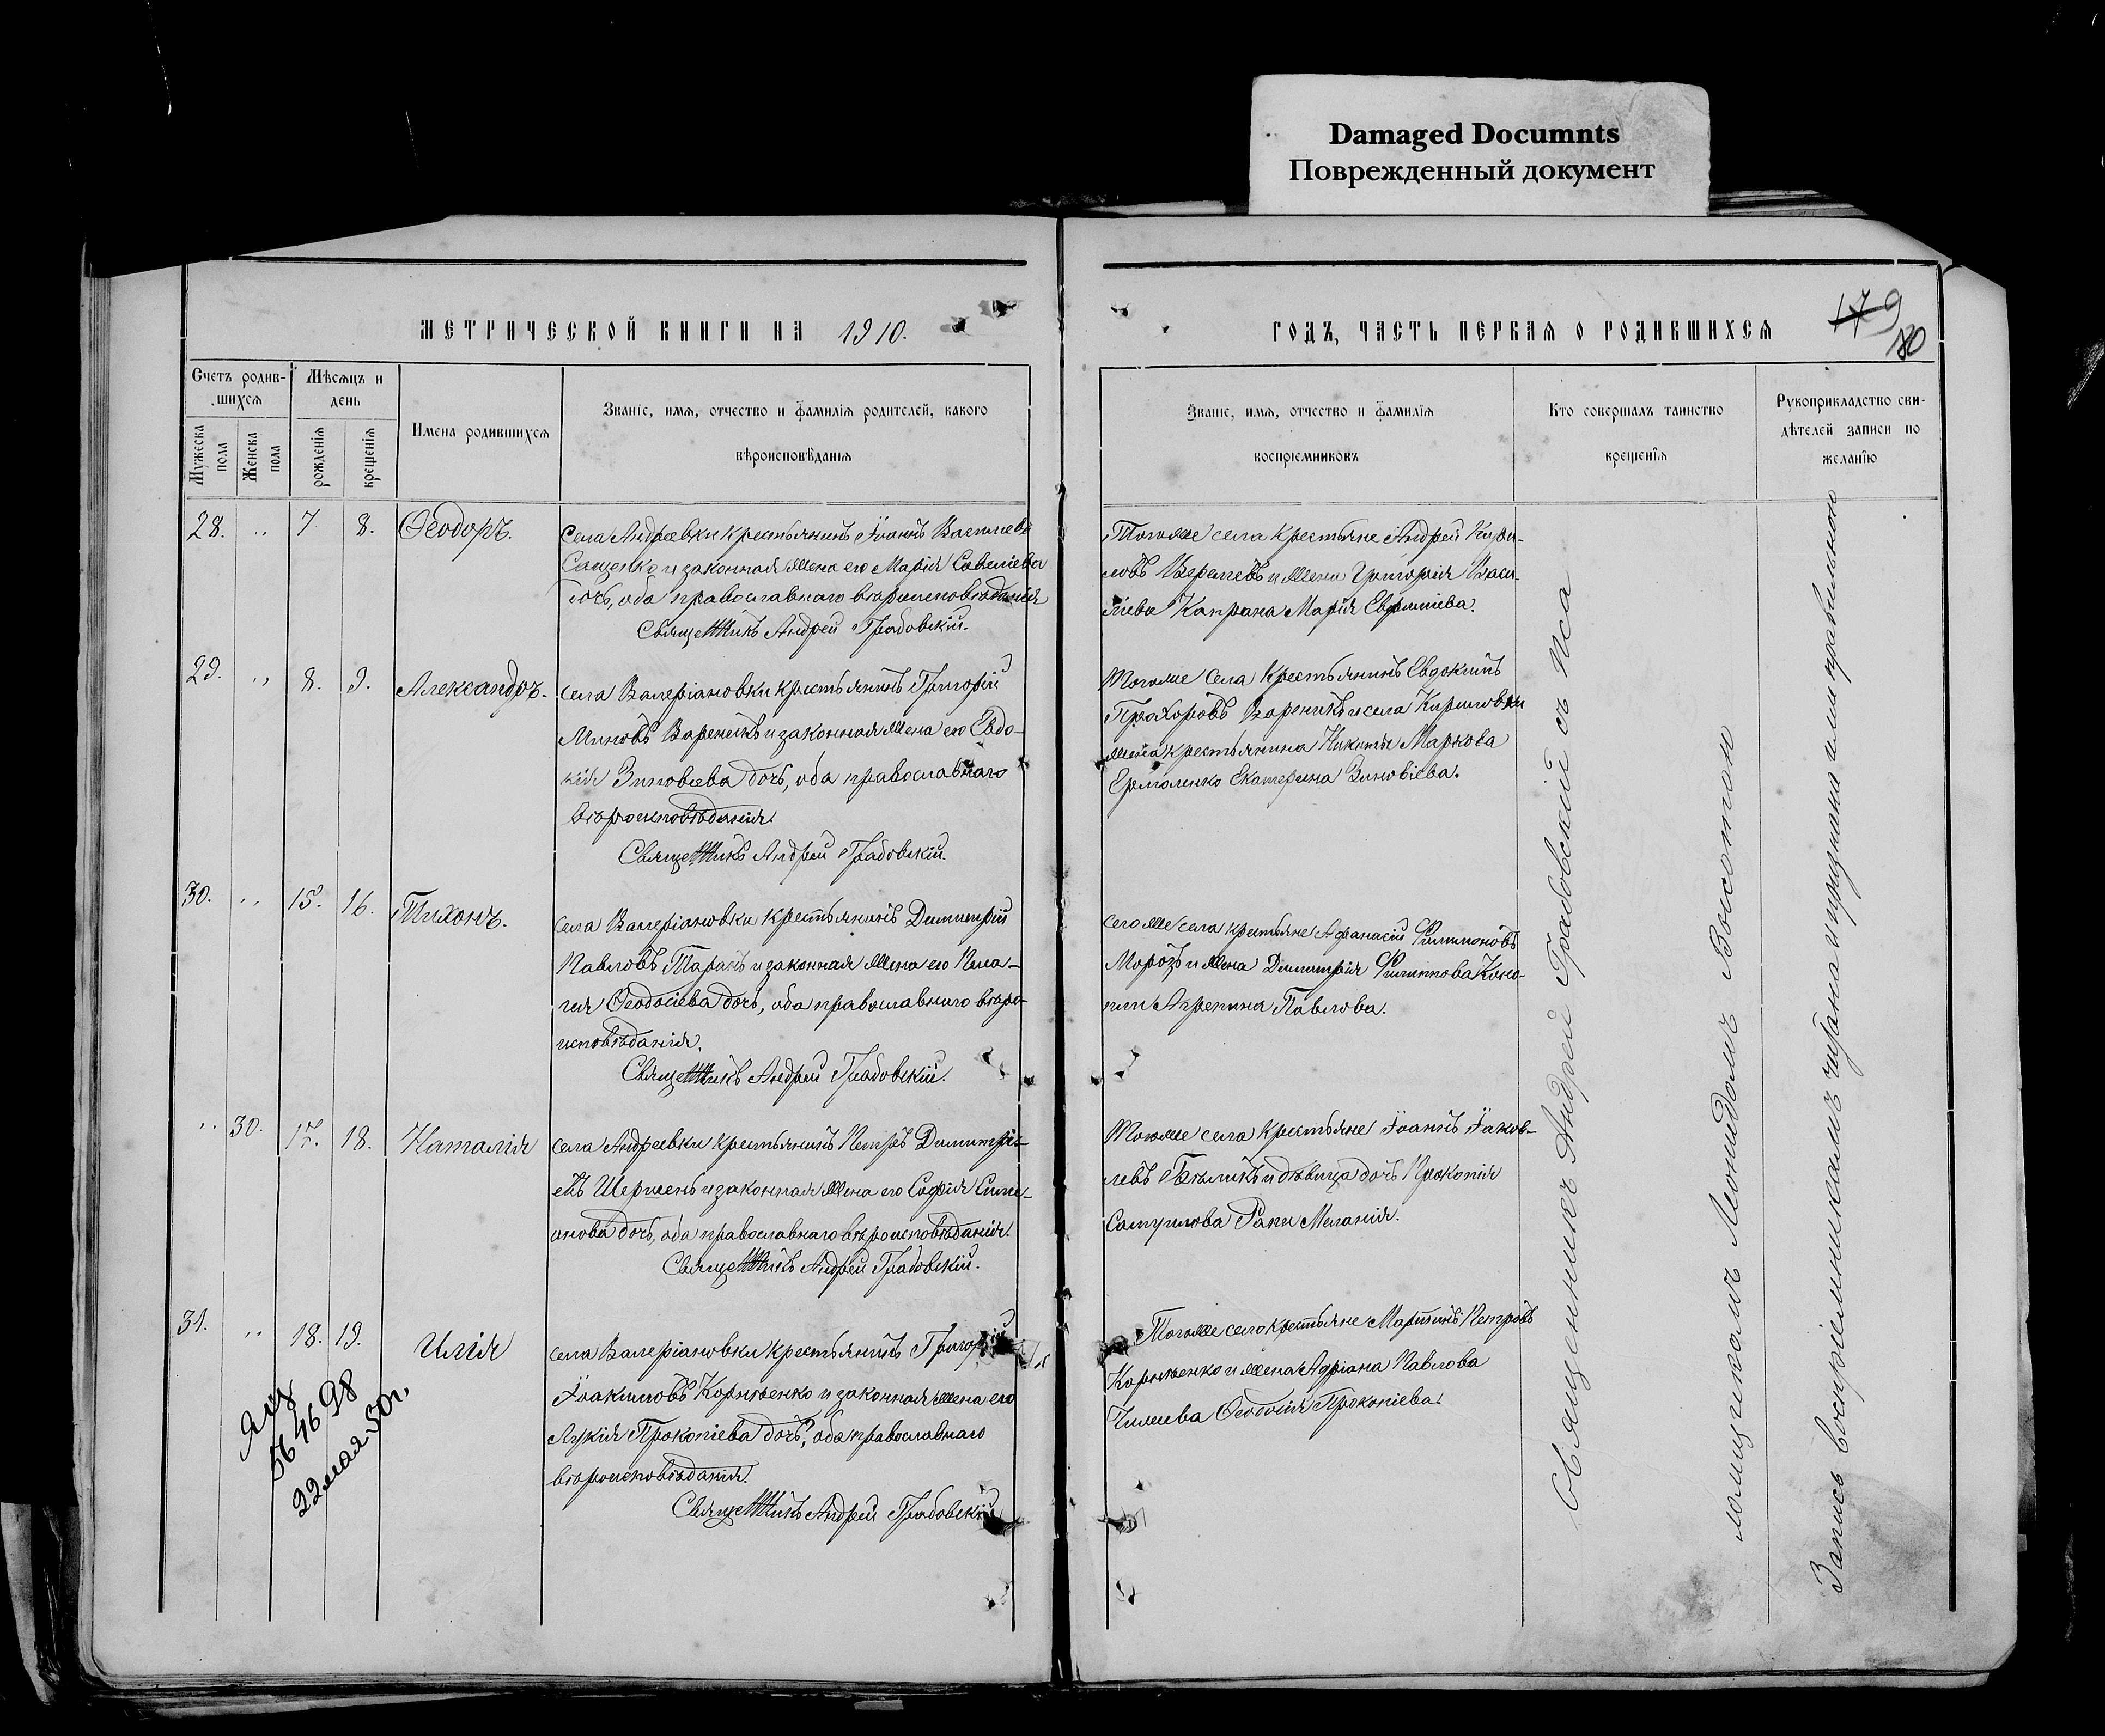 Damaged Documnts
Поврежденный документ
МЕТРИЧЕСКОЙ КНИГИ НА 1910.
Счетъ родив-
шихся
Мѣсяцъ и
день
Мужеска пола
Женска пола
рожденія
крещенія
Имена родившихся
Званіе, имя, отчество и фамилія родителей, какого
вѣроисповѣданія
28. „ 7. 8. Ѳеодоръ.
села Андреевки крестьянинъ Іоаннъ Васильевъ
Сащенко и законная жена его Марія Савеліева
дочь, оба православнаго вѣроисповѣданія
Священникъ Андрей Грабовскій.
29. „ 8. 9. Александръ.
села Валеріановки крестьянинъ Григорій
Миновъ Вареникъ и законная жена его Евдо-
кія Зиновіева дочь, оба православнаго
вѣроисповѣданія.
Священникъ Андрей Грабовскій.
30. „ 15. 16. Тихонъ.
села Валеріановки крестьянинъ Димитрій
Павловъ Тарасъ и законная жена его Пела-
гія Ѳеодосіева дочь, оба православнаго вѣро-
исповѣданія.
Священникъ Андрей Грабовскій.
„ 30. 17. 18. Наталія
села Андреевки крестьянинъ Петръ Димитрі-
евъ Шершень и законная жена его Софія Симе-
онова дочь, оба православнаго вѣроисповѣданія.
Священникъ Андрей Грабовскій.
31. „ 18. 19. Илія
села Валеріановки крестьянинъ Григорій
Іоакимовъ Корніенко и законная жена его
Лукія Прокопіева дочь, оба православнаго
вѣроисповѣданія.
Священникъ Андрей Грабовскій
22 мая 50г.
ГОДЪ, ЧАСТЬ ПЕРВАЯ О РОДИВШИХСЯ
179
180
Званіе, имя, отчество и фамилія
воспріемниковъ
Кто совершалъ таинство
крещенія
Рукоприкладство сви-
дѣтелей записи по
желанію
Тогоже села крестьяне Андрей Кири-
ловъ и жена Григорія Васи-
ліева Капрана Марія Евфиміева.
Тогоже села крестьянинъ Евдокимъ
Прохоровъ Вареникъ и села Кириловки
жена крестьянина Никиты Маркова
Ермоленко Екатерина Зиновіева.
сегоже села крестьяне Афанасій Филимоновъ
Морозъ и жена Димитрія Филиппова Коно-
пли Агрепина Павлова.
Тогоже села крестьяне Іоаннъ Іаков-
левъ и дѣвица дочь Прокопія
Самуилова Меланія.
Тогоже села крестьяне Мартинъ Петровъ
Корніенко и жена Адріана Павлова
Ѳеодосія Прокопіева.
Священникъ Андрей Грабовскій съ Пса
ломщикомъ Леонидомъ Высотом
Запись воспріемникамъ читана и признана ими правильною